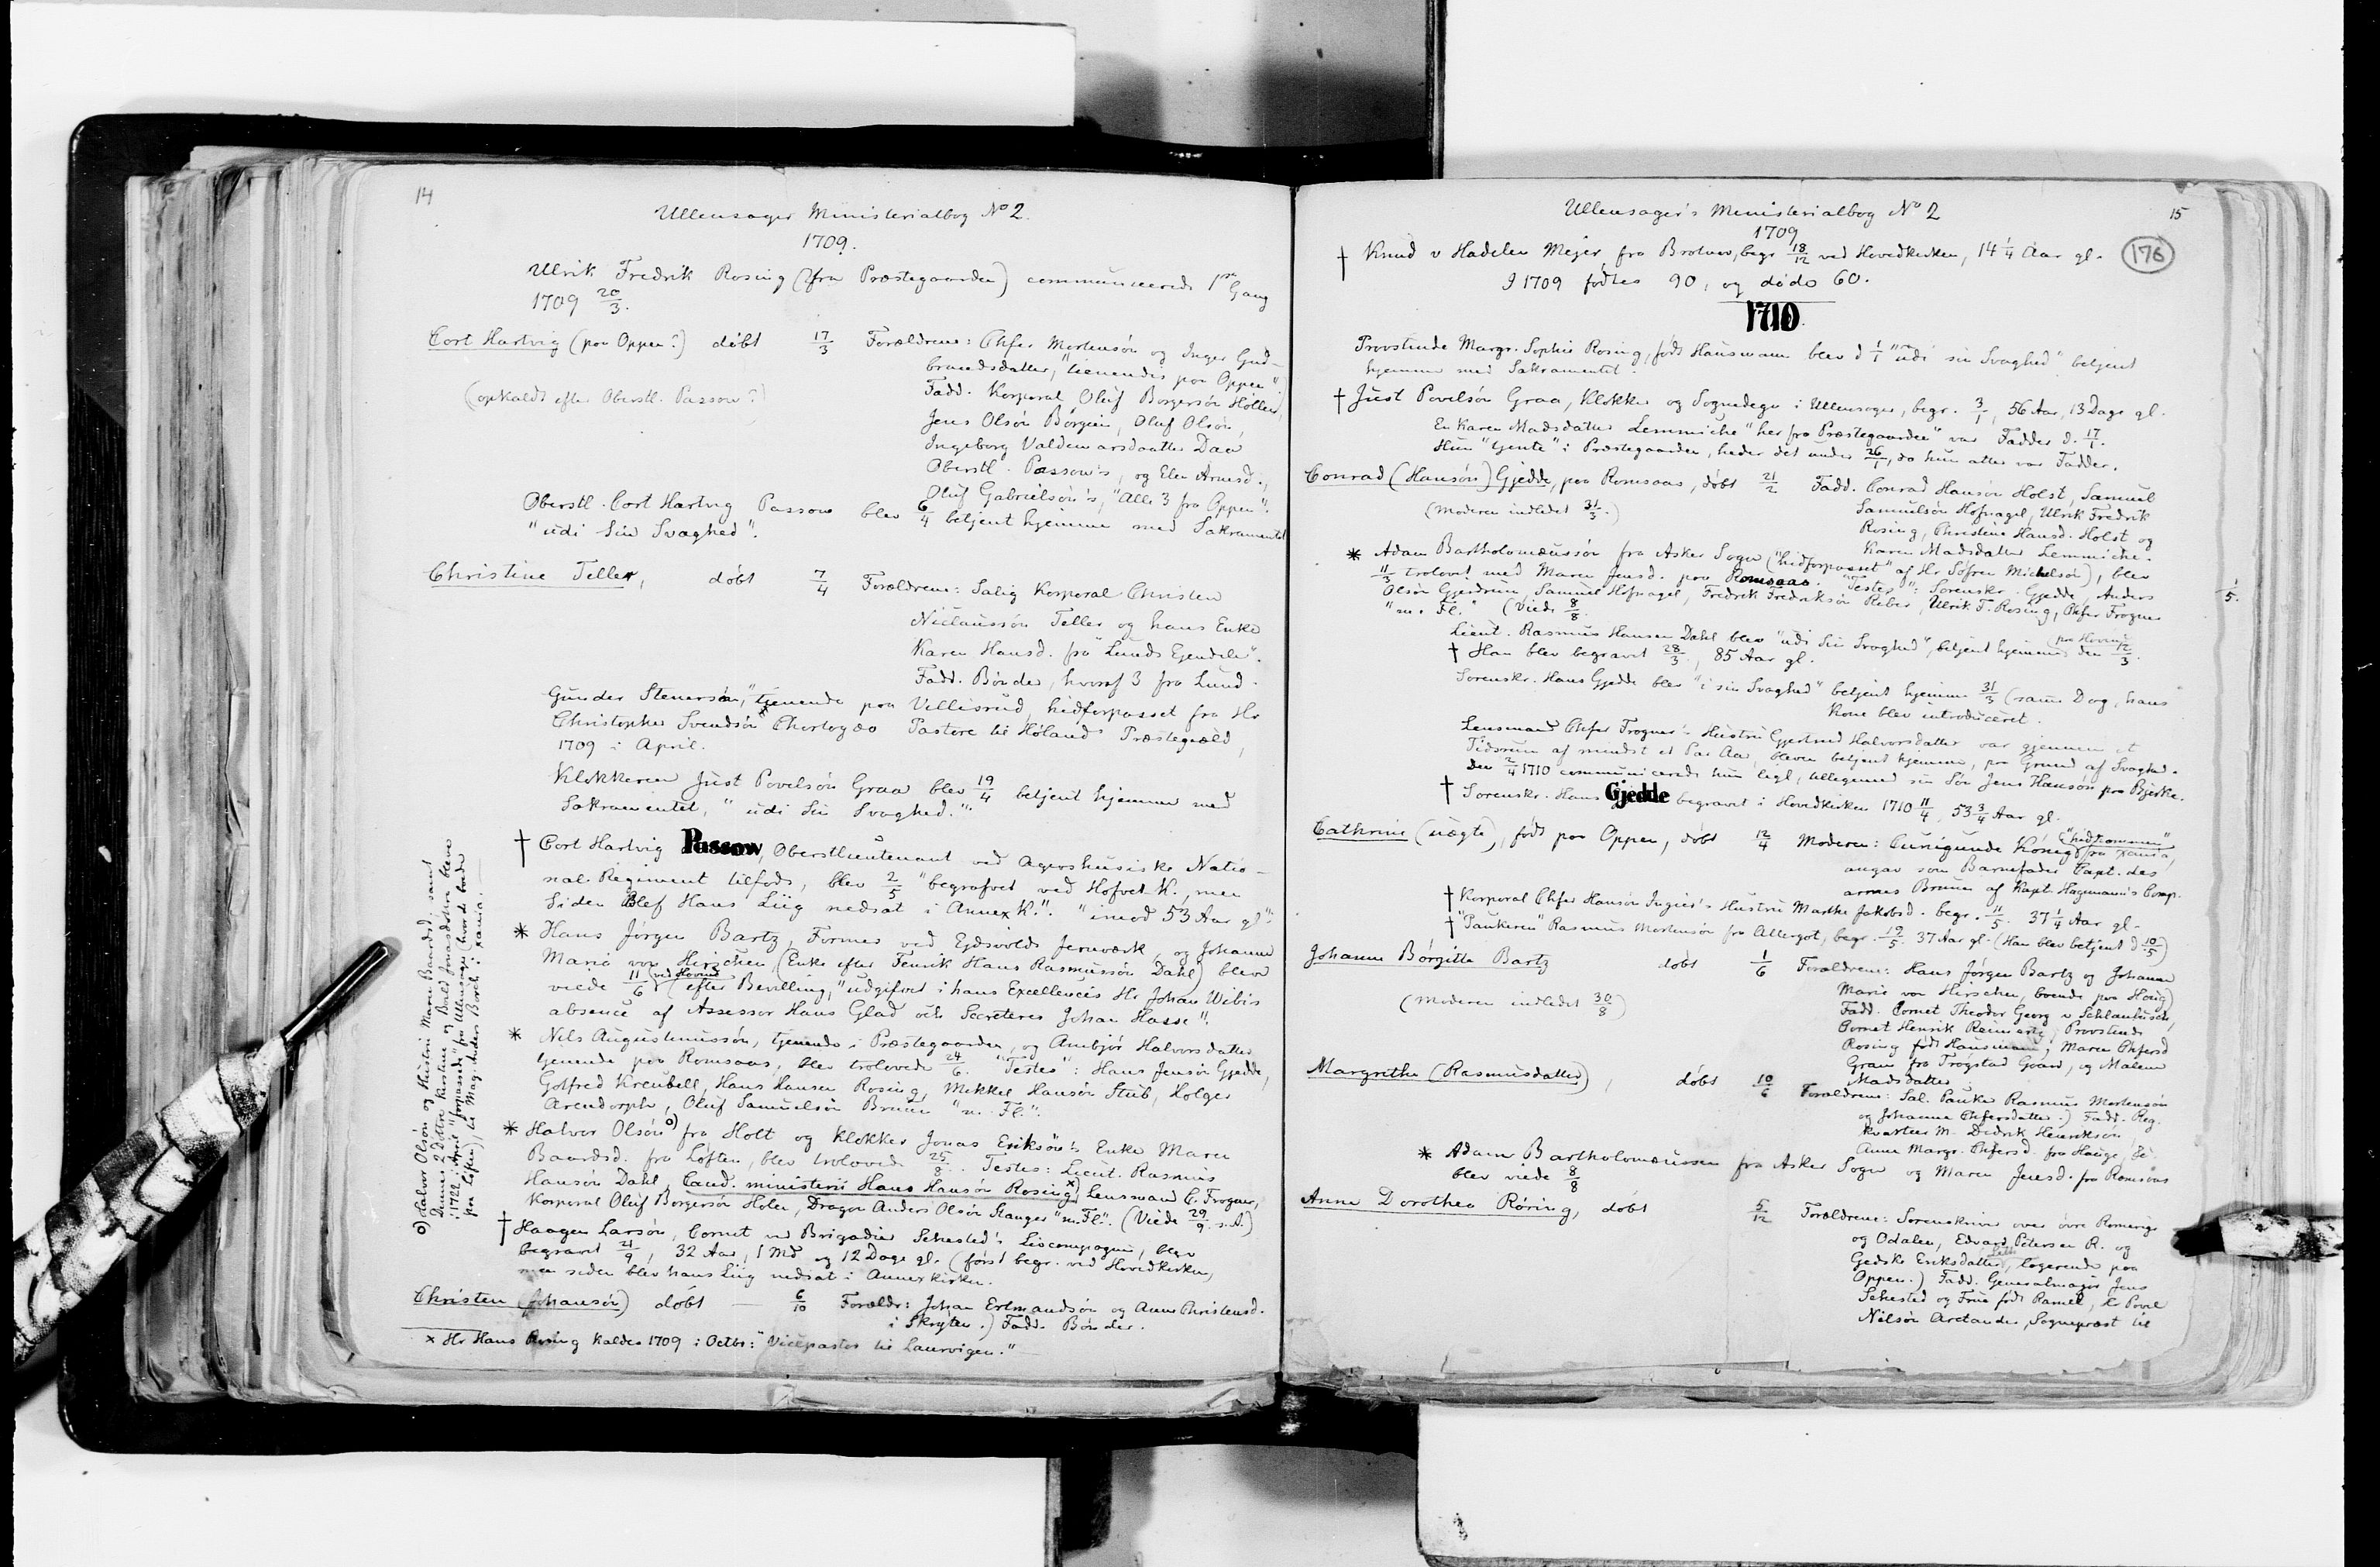 14
Ullensager Ministerialbog No 2.
1709.
Ulrik Fredrik Rosing (fra Præstegaarden) communicerede 1ste Gang
1709 20/3.
Cort Hartvig (paa Oppen?) döbt 17/3 Forældrene: Chfer Mortensön og Inger Gud-
brandsdatter, "tienendes paa Oppen"
(opkaldt efter Oberstl. Passow?) Fadd. Korporal Oluf Borgersön Höllen,
Jens Olsön Börgien, Oluf Olsön,
Ingeborg Valdemarsdaatter Daa
Oberstl. Passow's, og Elen Arnesd.,
Oluf Gabrielsön's, "Alle 3 fra Oppen".
Oberstl. Cort Hartvig Passow blev 6/4 betjent hjemme med Sakramentet
"udi Sin Svaghed".
Christine Teller, döbt 7/4 Forældrene: Salig Korporal Christen
Niclaussön Teller og hans Enke
Karen Hansd. fra "Lunds Ejendele".
Fadd. Bönder, hvoraf 3 fra Lund.
Gunder Stenersön, "tjenende paa Vellisrud, hidforpasset fra Hr
Christopher Svendsön Pastore til Hölands Præstegæld,
1709 i April.
Klokkeren Just Povelsön Graa blev 19/4 betjent hjemme med
Sakramentet, "udi Sin Svaghed."
† Cort Hartvig Passow, Oberstlieutenant ved Agershusiske Natio-
nal-Regiment tilfods, blev 2/5 "begrafvet ved Hofvet K., men
Siden Blef Hans Liig nedsat i Annex K.". "imod 53 Aar gl".
* Hans Jörgen Bartz, Former ved Ejdsvolds Jernværk, og Johanne
Marie von Hirschen (Enke efter Fenrik Hans Rasmussön Dahl) blev
viede 11/6 (ved Hovind) (efter Bevilling, "udgifvet i hans Excellences Hr. Johan Wibes
absence af Assessor Hans Glad och Secreterer Johan Hasse".
* Nels Augustinussön, tjenende i Præstegaarden, og Anbjör Halvorsdatter
tjenende paa Romsaas, blev trolovede 24/6. "Testes": Hans Jensön Gjedde,
Golfred Kreubell, Hans Hansen Rosing, Mikkel Hansön Stub, Holger
Arendorph, Oluf Samuelsön Bruun "m. Fl."
* Halvor Olsön o) fra Holt og Klokker Jonas Eriksön's Enke Maren
Baardsd. fra Löften, blev trolovede 25/8. Testes: Lieut. Rasmus
Hansön Dahl, Cand. ministerii Hans Hansön Rosing x), Lensmand C. Frogner,
Korporal Oluf Borgersön Holen, Dragon Anders Olsön Hauger "m. Fl." (Viede 29/9 s. A.)
† Haagen Larsön, Cornet ved Brigadier Sehested's Livcompagni, blev
begravet 21/9, 32 Aar, 1 Md og 12 Dage gl. (först begr. ved Hovedkirken,
men siden blev hans Liig nedsat i Annexkirken.
Christen (Johansön) döbt — 6/10 Forældr: Johan Erlmandsön og Anne Christensd.
i Skryten.) Fadd. Bönder.
x Hr Hans Rosing kaldes 1709 i Octbr: "Vicepastor til Laurvigen."
o) Halvor Olsön og Hustru Maren Baardsd. samt
Dennes 2 Döttre Kirstine og Bold Jonasdöttre bleve
i 1722 i April "forpassede" fra Ullensager (hvor de boede
paa Löften) til Mag. Anders Borch i Xania. —
Ullensager's Ministerialbog No 2 15
1709
† Knud v Hadelen Mejer fra Brotner, begr 18/12 ved Hovedkirken, 14 1/4 Aar gl. (176)
I 1709 födtes 90, og döde 60.
1710
Provstinde Margr. Sophie Rosing, födt Hausmann blev d 1/1 "udi sin Svaghed" betjent
hjemme med Sakramentet.
† Just Povelsön Graa, Klokker og Sognedegn i Ullensager, begr. 3/1, 56 Aar, 13 Dage gl.
En Karen Madsdatter Lemmiche "her fra Præstegaarden" var Fadder d. 17/1.
Hun "tjente" i Præstegaarden, heder det under 26/1, da hun atter var Fadder.
Conrad (Hansön) Gjedde, paa Romsaas, döbt 21/2 Fadd. Conrad Hansön Holst, Samuel
(Moderen indledet 31/3.) Samuelsön Hofnagel, Ulrik Fredrik
Rosing, Christine Hansd. Holst og
Karen Madsdatter Lemmiche.
* Adam Bartholomæussön fra Asker Sogn ("hidforpasset" af Hr Söfren Michelsön), blev
11/3 trolovet med Maren Jensd. paa Romsaas. "Testes": Sorenskr. Gjedde, Anders
Olsön Gjerdrum, Samuel Hofnagel, Fredrik Fredriksön Reber, Ulrik F. Rosing, Chfer Frogner
"m. Fl." (Viede 8/8. 1/5.
Lieut. Rasmus Hansen Dahl blev "udi Sin Svaghed", betjent hjemme (paa Hovind) den 12/3.
† Han blev begravet 28/3, 85 Aar gl.
Sorenskr. Hans Gjedde blev "i sin Svaghed" betjent hjemme 31/3 (samme Dag, hans
Kone blev introduceret.
Lensmand Chfer Frogner's Hustru Gjertrud Halvorsdatter var gjennem et
Tidsrum af mindst et Par Aar, bleven betjent hjemme, paa Grund af Svaghed.
Den 2/4 1710 communicerede hun tilligemed sin Sön Jens Hansön paa Bjerke.
† Sorenskr. Hans Gjedde begravet i Hovedkirken 1710 11/4, 53 3/4 Aar gl.
Cathrine (uægte), födt paa Oppen, döbt 12/4 Moderen: Cunigunde König ("hidkommen" fra Xania,
angav som Barnefader Capt. des
armes Bruun af Kapt. Hagemann's Comp.
† Korporal Chfer Hansön Ingier's Hustru Marthe Jakobsd. begr. 11/5. 37 1/4 Aar gl.
† "Paukeren" Rasmus Mortensön fra Allergot, begr. 19/5. 37 Aar gl. (Han blev betjent d 10/5)
Johanne Börgitte Bartz döbt 1/6 Forældrene: Hans Jörgen Bartz og Johanne
Marie von Hirschen, boende paa Hong)
(Moderen indledet 30/8) Fadd. Cornet Theodor Georg v Schlanbusch,
Cornet Henrik Rennartz, Provstinde
Rosing födt Hausmann, Maren Chfersd
Gran fra Trögstad Gaard, og Malene
Madsdatter
Margrethe (Rasmusdatter), döbt 10/6 Forældrene: Sal. Pauker Rasmus Mortensön
og Johanne Chfersdatter.) Fadd. Reg.
Kvarteer M. Didrik Henriksön,
Anne Margr. Chfersd. fra Hauge,
* Adam Bartholomæussen fra Asker Sogn og Maren Jensd. fra Romsaas
blev viede 8/8
Anne Dorothea Röring, döbt 5/12 Forældrene: Sorenskriver over övre Romerige
og Odalen, Edvard Petersen R. og
Gedske Eriksdatter, logerende paa
Oppen.) Fadd. Generalmajor Jens
Sehested og Frue födt Ramel, Hr Povel
Nilsön Arctander, Sognepræst til